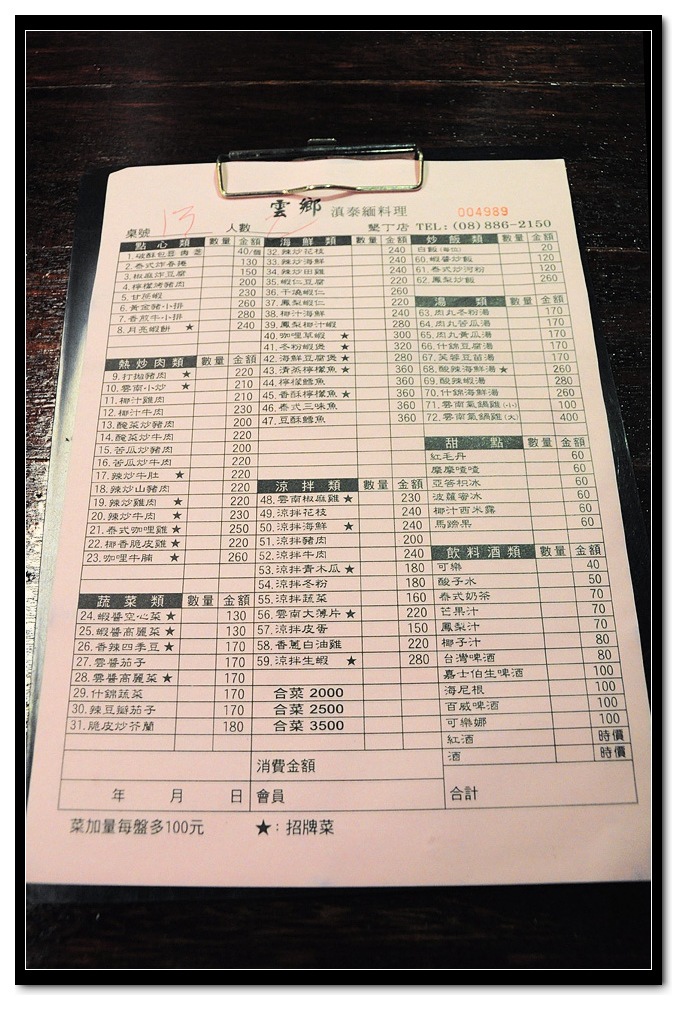 雲鄉 滇泰緬料理
004989
桌號 13 人數
墾丁店 TEL: (08) 886-2150
點心類 數量 金額
40/個
2. 泰式炸春捲 130
3. 椒麻炸豆腐 150
4. 檸檬烤豬肉 200
5. 甘蔗蝦 230
6. 黃金豬小排 260
7. 香煎牛小排 280
8. 月亮蝦餅 ★ 240
熱炒肉類 數量 金額
9. 打拋豬肉 ★ 220
10. 雲南小炒 ★ 210
11. 椰汁雞肉 210
12. 椰汁牛肉 230
13. 醃菜炒豬肉 200
14. 醃菜牛肉 220
15. 苦瓜炒豬肉 200
16. 苦瓜炒牛肉 220
17. 辣炒牛肚 ★ 220
18. 辣炒山豬肉 220
19. 辣炒雞肉 ★ 210
20. 辣炒牛肉 ★ 230
21. 泰式咖哩雞 ★ 250
22. 椰香脆皮雞 ★ 220
23. 咖哩牛腩 ★ 260
蔬菜類 數量 金額
24. 蝦醬空心菜 ★ 130
25. 蝦醬高麗菜 ★ 130
26. 香辣四季豆 ★ 170
27. 雲醬茄子 170
28. 雲醬高麗菜 ★ 170
29. 什錦蔬菜 170
30. 辣豆瓣茄子 170
31. 脆皮炒芥蘭 180
海鮮類 數量 金額
32. 辣炒花枝 240
33. 辣炒海鮮 240
34. 辣炒田雞 240
35. 蝦仁豆腐 220
36. 干燒蝦仁 260
37. 鳳梨蝦仁 220
38. 椰汁海鮮 240
39. 鳳梨椰汁蝦 280
40. 咖哩草蝦 ★ 300
41. 冬粉蝦煲 ★ 320
42. 海鮮豆腐煲 ★ 280
43. 清蒸檸檬魚 ★ 360
44. 檸檬鱈魚 360
45. 香酥檸檬魚 ★ 360
46. 泰式三味魚 360
47. 豆酥鱈魚 360
涼拌類 數量 金額
48. 雲南椒麻雞 ★ 230
49. 涼拌花枝 240
50. 涼拌海鮮 ★ 240
51. 涼拌豬肉 200
52. 涼拌牛肉 240
53. 涼拌青木瓜 ★ 180
54. 涼拌冬粉 180
55. 涼拌蔬菜 160
56. 雲南大薄片 ★ 220
57. 涼拌皮蛋 150
58. 香蔥白油雞 220
59. 涼拌生蝦 ★ 280
合菜 2000
合菜 2500
合菜 3500
炒飯類 數量 金額
白飯(每位) 20
60. 蝦醬炒飯 120
61. 泰式炒河粉 120
62. 鳳梨炒飯 160
湯類 數量 金額
63. 肉丸冬粉湯 170
64. 肉丸苦瓜湯 170
65. 肉丸黃瓜湯 170
66. 什錦豆腐湯 170
67. 芙蓉豆苗湯 170
68. 酸辣海鮮湯 ★ 260
69. 酸辣蝦湯 280
70. 什錦海鮮湯 260
71. 雲南氣鍋雞(小) 100
72. 雲南氣鍋雞(大) 400
甜點 數量 金額
紅毛丹 60
摩摩喳喳 60
亞答枳冰 60
波蘿蜜冰 60
椰汁西米露 60
馬蹄果 60
飲料酒類 數量 金額
可樂 40
酸子水 50
泰式奶茶 70
芒果汁 70
鳳梨汁 70
椰子汁 80
台灣啤酒 80
嘉士伯生啤酒 100
海尼根 100
百威啤酒 100
可樂娜 100
紅酒 時價
酒 時價
消費金額
年 月 日 會員 合計
菜加量每盤多100元 ★:招牌菜